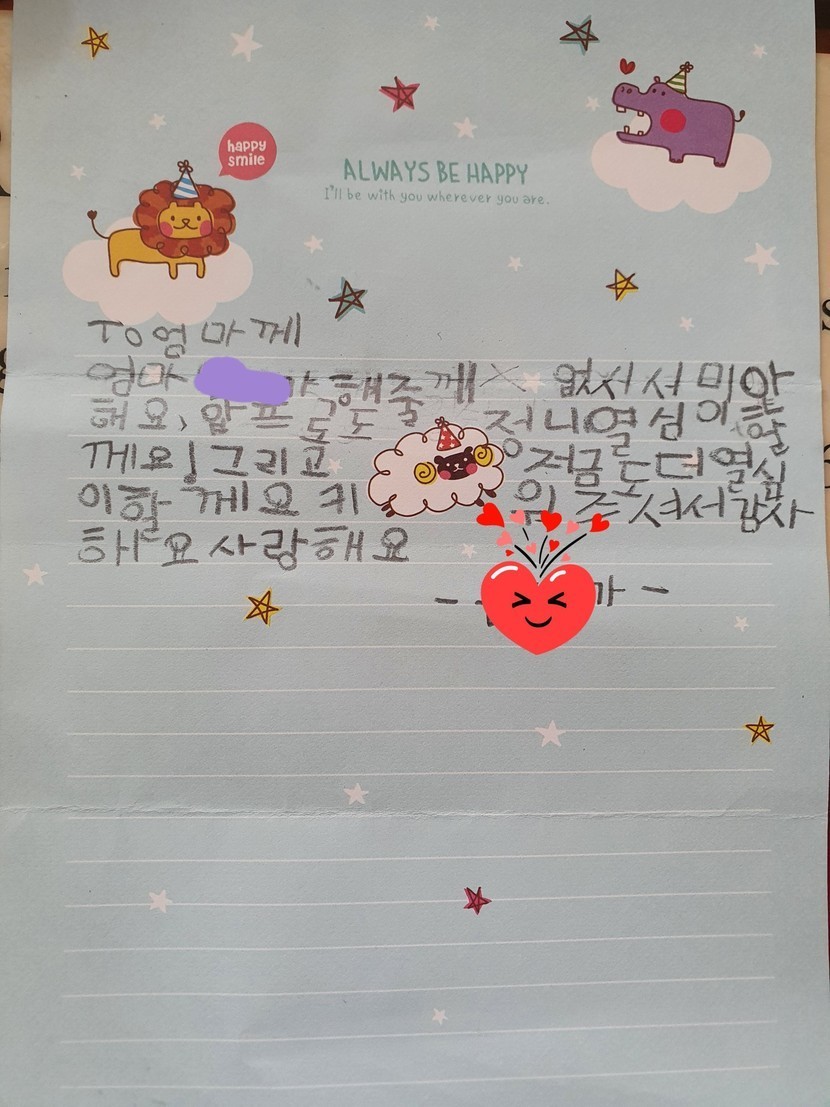 happy
smile
ALWAYS BE HAPPY
I'll be with you wherever you are.
To 엄마께
엄마 해줄께 없서서 미안
해요, 앞프로도 정니열심이 할
께요! 그리고 저금도더열심
이할께요 키워주셔서감사
해요사랑해요